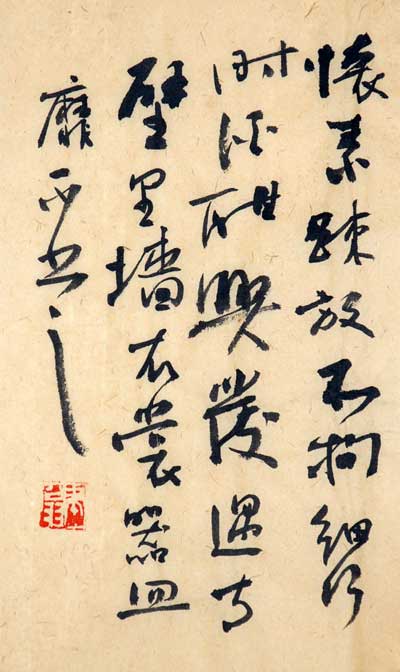 懷素踈放不拘細行
时酒酣興發遇寺
壁里墙衣裳器皿
靡不书之